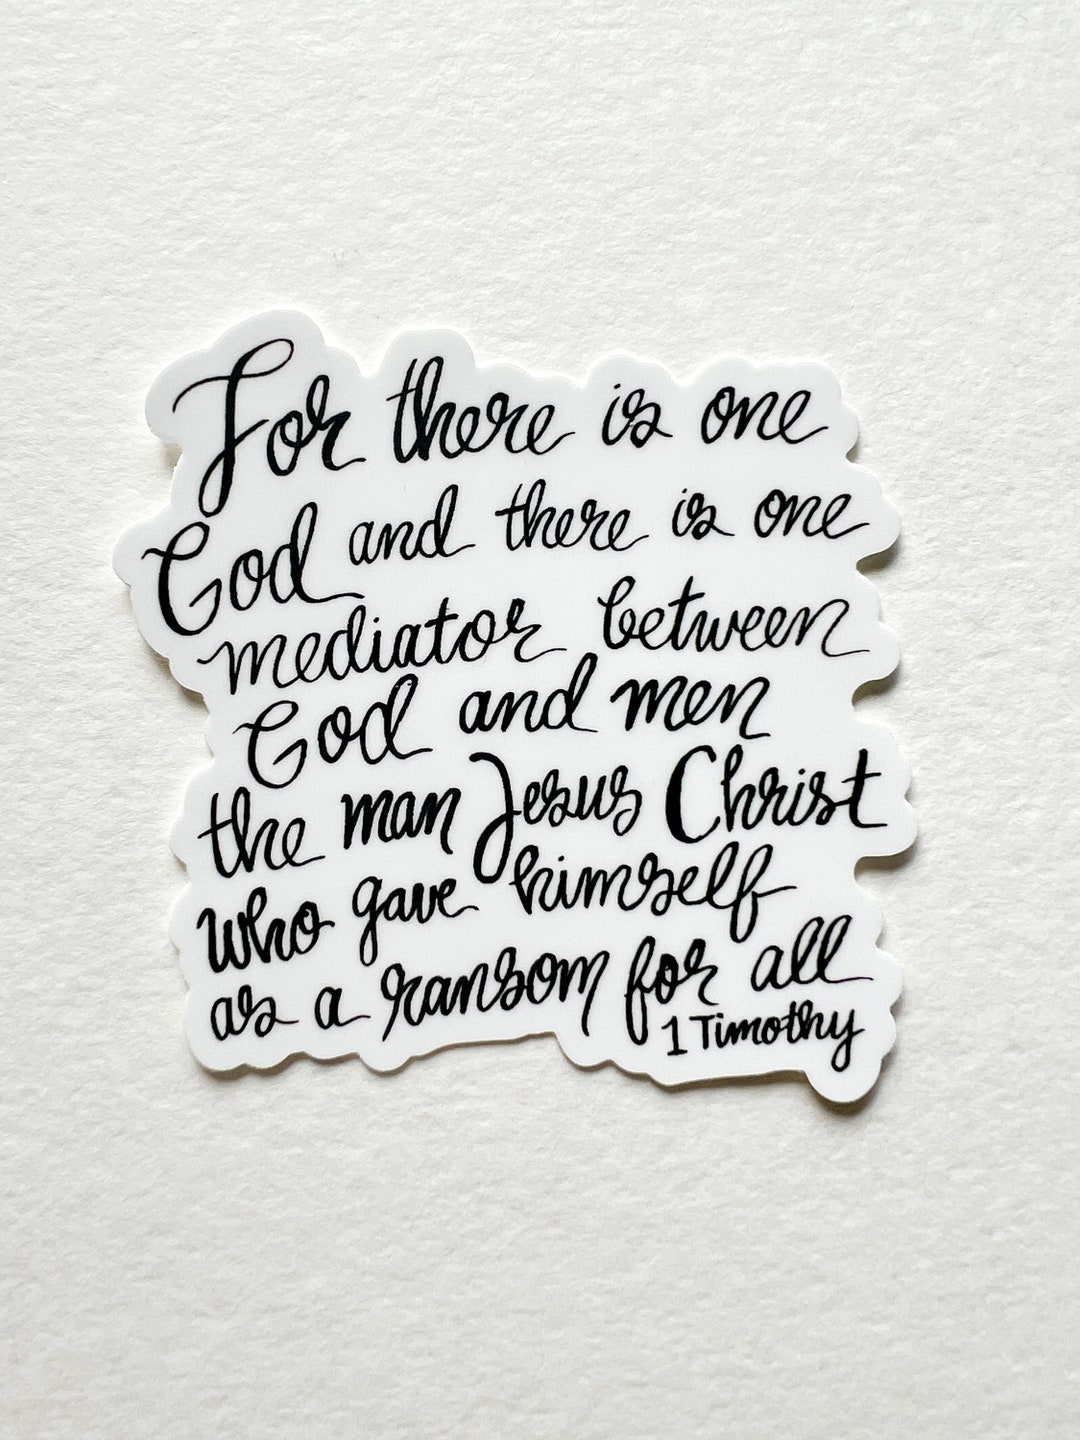 For there is one
God and there is one
mediator between
God and men
the man Jesus Christ
who gave himself
as a ransom for all
1 Timothy